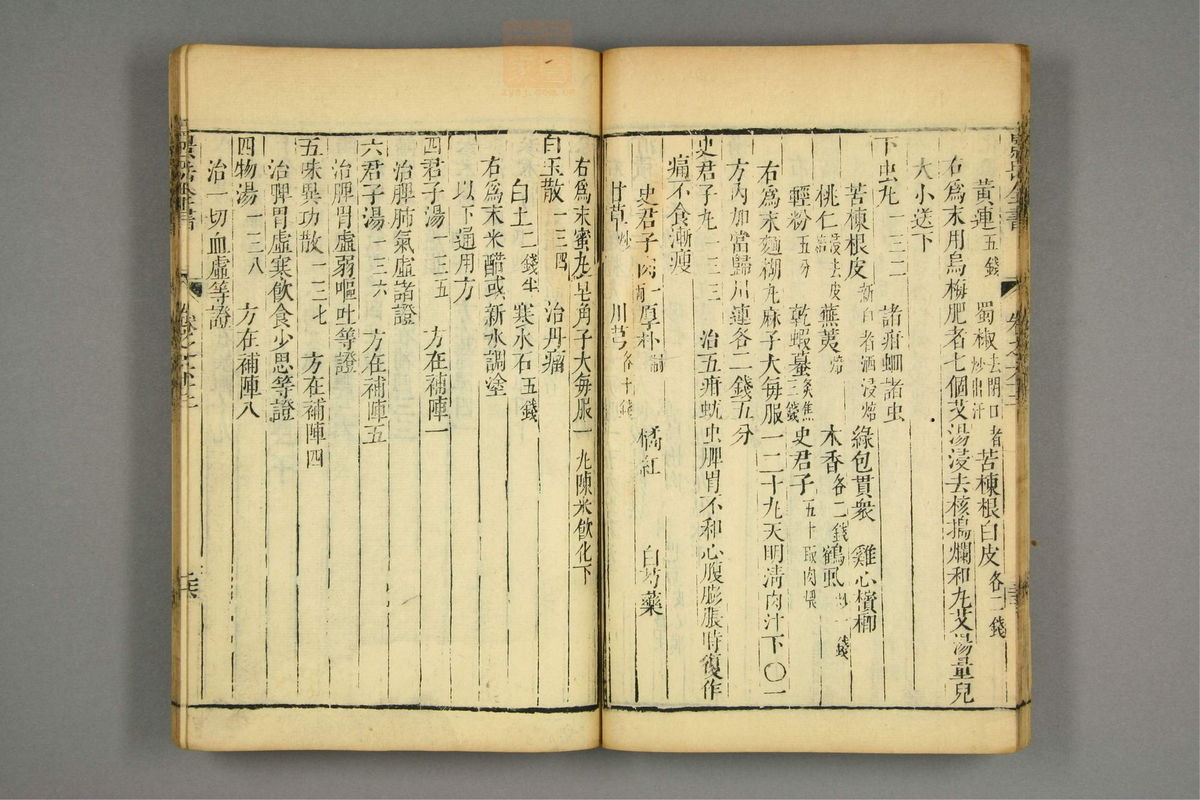 黃連五錢 蜀椒去閉口者炒出汗 苦楝根白皮各二錢
右爲末用烏梅肥者七個艾湯浸去核搗爛和丸艾湯量兒
大小送下
下虫丸一三二 諸疳䘌諸虫
苦楝根皮新白者酒浸焙 綠包貫衆 雞心檳榔
桃仁浸去皮焙 蕪荑焙 木香各二錢 鶴虱炒一錢
輕粉五分 乾蝦蟇炙焦三錢 史君子五十取肉煨
右爲末麵糊丸麻子大每服一二十丸天明淸肉汁下〇一
方內加當歸川連各二錢五分
史君子丸一三三 治五疳蚘虫脾胃不和心腹膨脹時復作
痛不食漸瘦
史君子肉一兩 厚朴制 橘紅 白芍藥
甘草炒 川芎各十錢
右爲末蜜丸皂角子大每服一丸陳米飲化下
白玉散一三四 治丹瘤
白土二錢半 寒水石五錢
右爲末米醋或新水調塗
以下通用方
四君子湯一三五 方在補陣一
治脾肺氣虛諸證
六君子湯一三六 方在補陣五
治脾胃虛弱嘔吐等證
五味異功散一三七 方在補陣四
治脾胃虛寒飲食少思等證
四物湯一三八 方在補陣八
治一切血虛等證